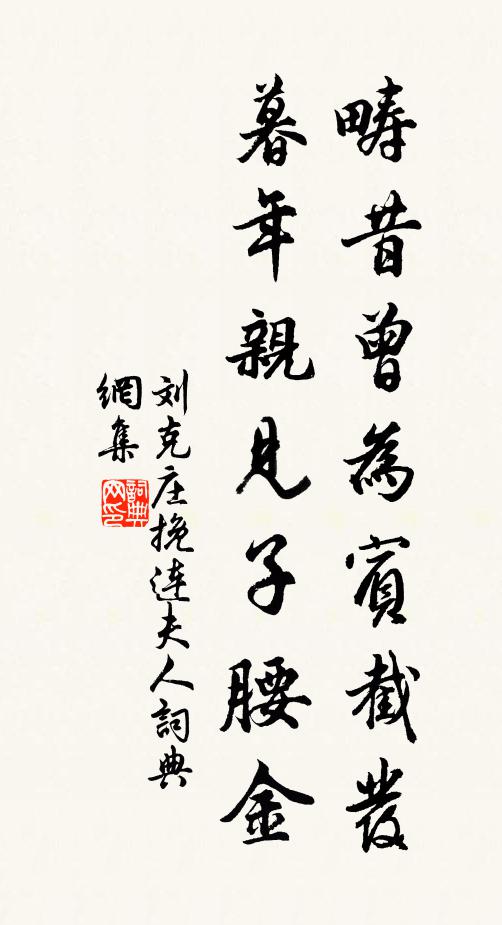 疇昔曾為賓截發
暮年親見子腰金
刘克庄挽连夫人詞典
網集
詞典網印